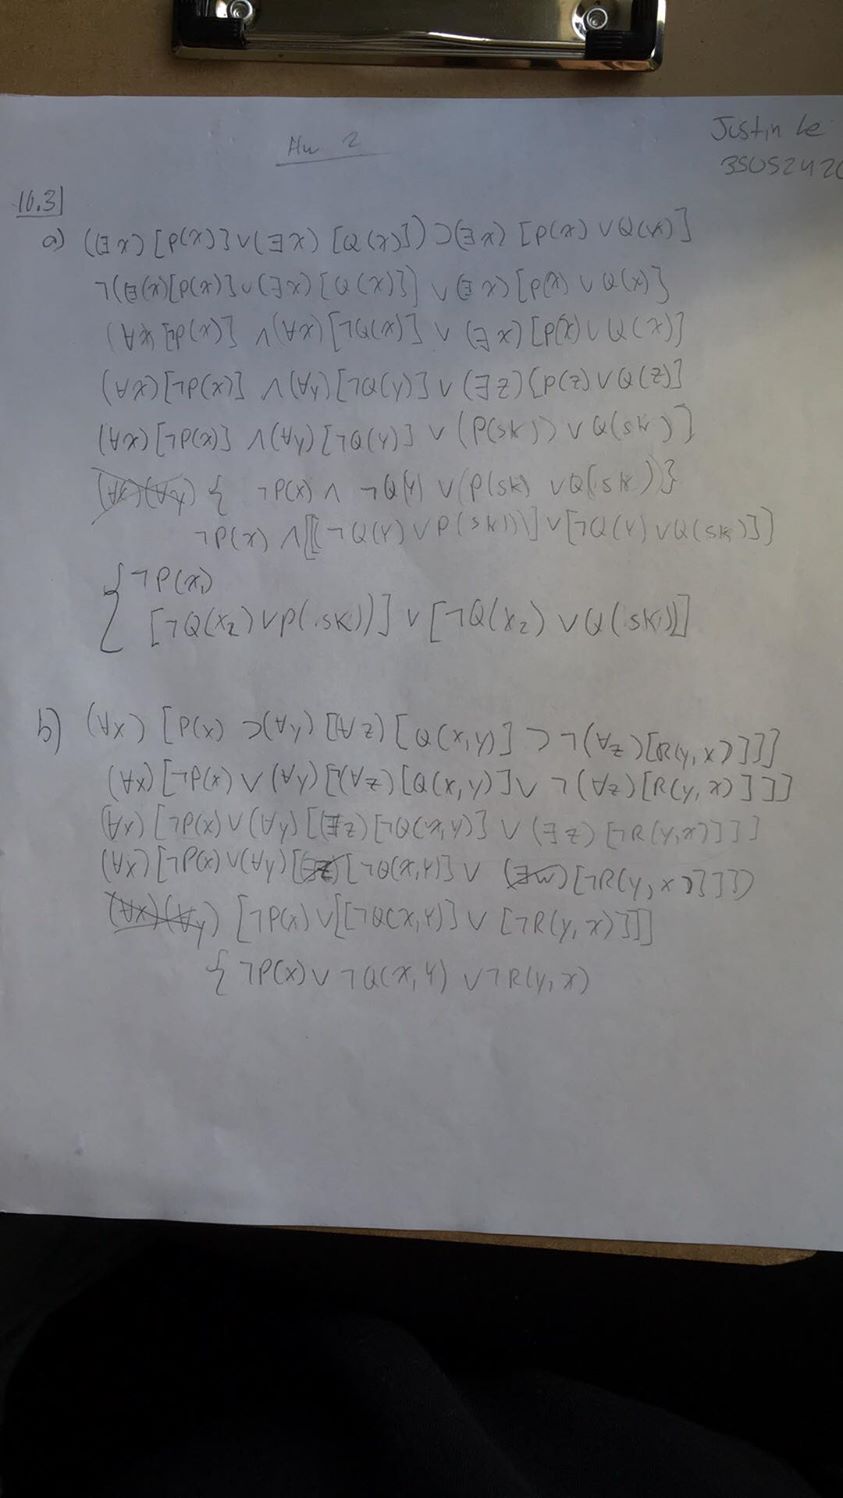 Hw 2
Justin Le
3505242
16.3)
a) ((∃x)[P(x)]∨(∃x)[Q(x)])⊃(∃x)[P(x)∨Q(x)]
¬(∃(x)[P(x)]∨(∃x)[Q(x)]] ∨(∃x)[P(x) ∨ Q(x)]
(∀x[¬P(x)] ∧(∀x)[¬Q(x)] ∨ (∃x)[P(x)∨Q(x)]
(∀x)[¬P(x)] ∧(∀y)[¬Q(y)] ∨(∃z)[P(z)∨Q(z)]
(∀x)[¬P(x)] ∧(∀y)[¬Q(y)] ∨ (P(sk)) ∨ Q(sk)]
(∀x)(∀y) { ¬P(x) ∧ ¬Q(y) ∨(P(sk) ∨Q(sk)}
¬P(x) ∧[[(¬Q(y)∨P(sk))]∨[¬Q(y)∨Q(sk)]]
{ ¬P(x)
[¬Q(x₂)∨P(sk))] ∨ [¬Q(x₂) ∨Q(sk)]]
b) (∀x) [P(x) ⊃(∀y)[(∀z)[Q(x,y)] ⊃ ¬(∀z)[R(y,x)]]]
(∀x)[¬P(x) ∨ (∀y)[¬(∀z)[Q(x,y)]∨ ¬(∀z)[R(y,x)]]]
(∀x)[¬P(x)∨(∀y)[(∃z)[¬Q(x,y)] ∨ (∃z)[¬R(y,x)]]]
(∀x)[¬P(x)∨(∀y)[(∃z)[¬Q(x,y)] ∨ (∃w)[¬R(y,x)]]])
(∀x)(∀y) [¬P(x)∨[[¬Q(x,y)]∨[¬R(y,x)]]]
{ ¬P(x)∨¬Q(x,y) ∨¬R(y,x)